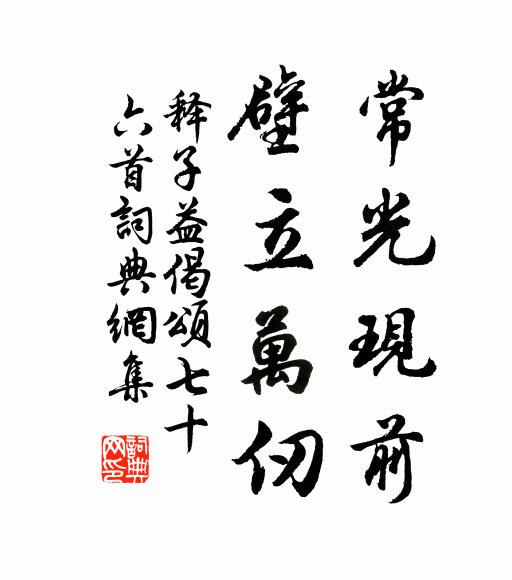 常光現前
壁立萬仞
释子益偈頌七十
六首詞典網集
詞典網印